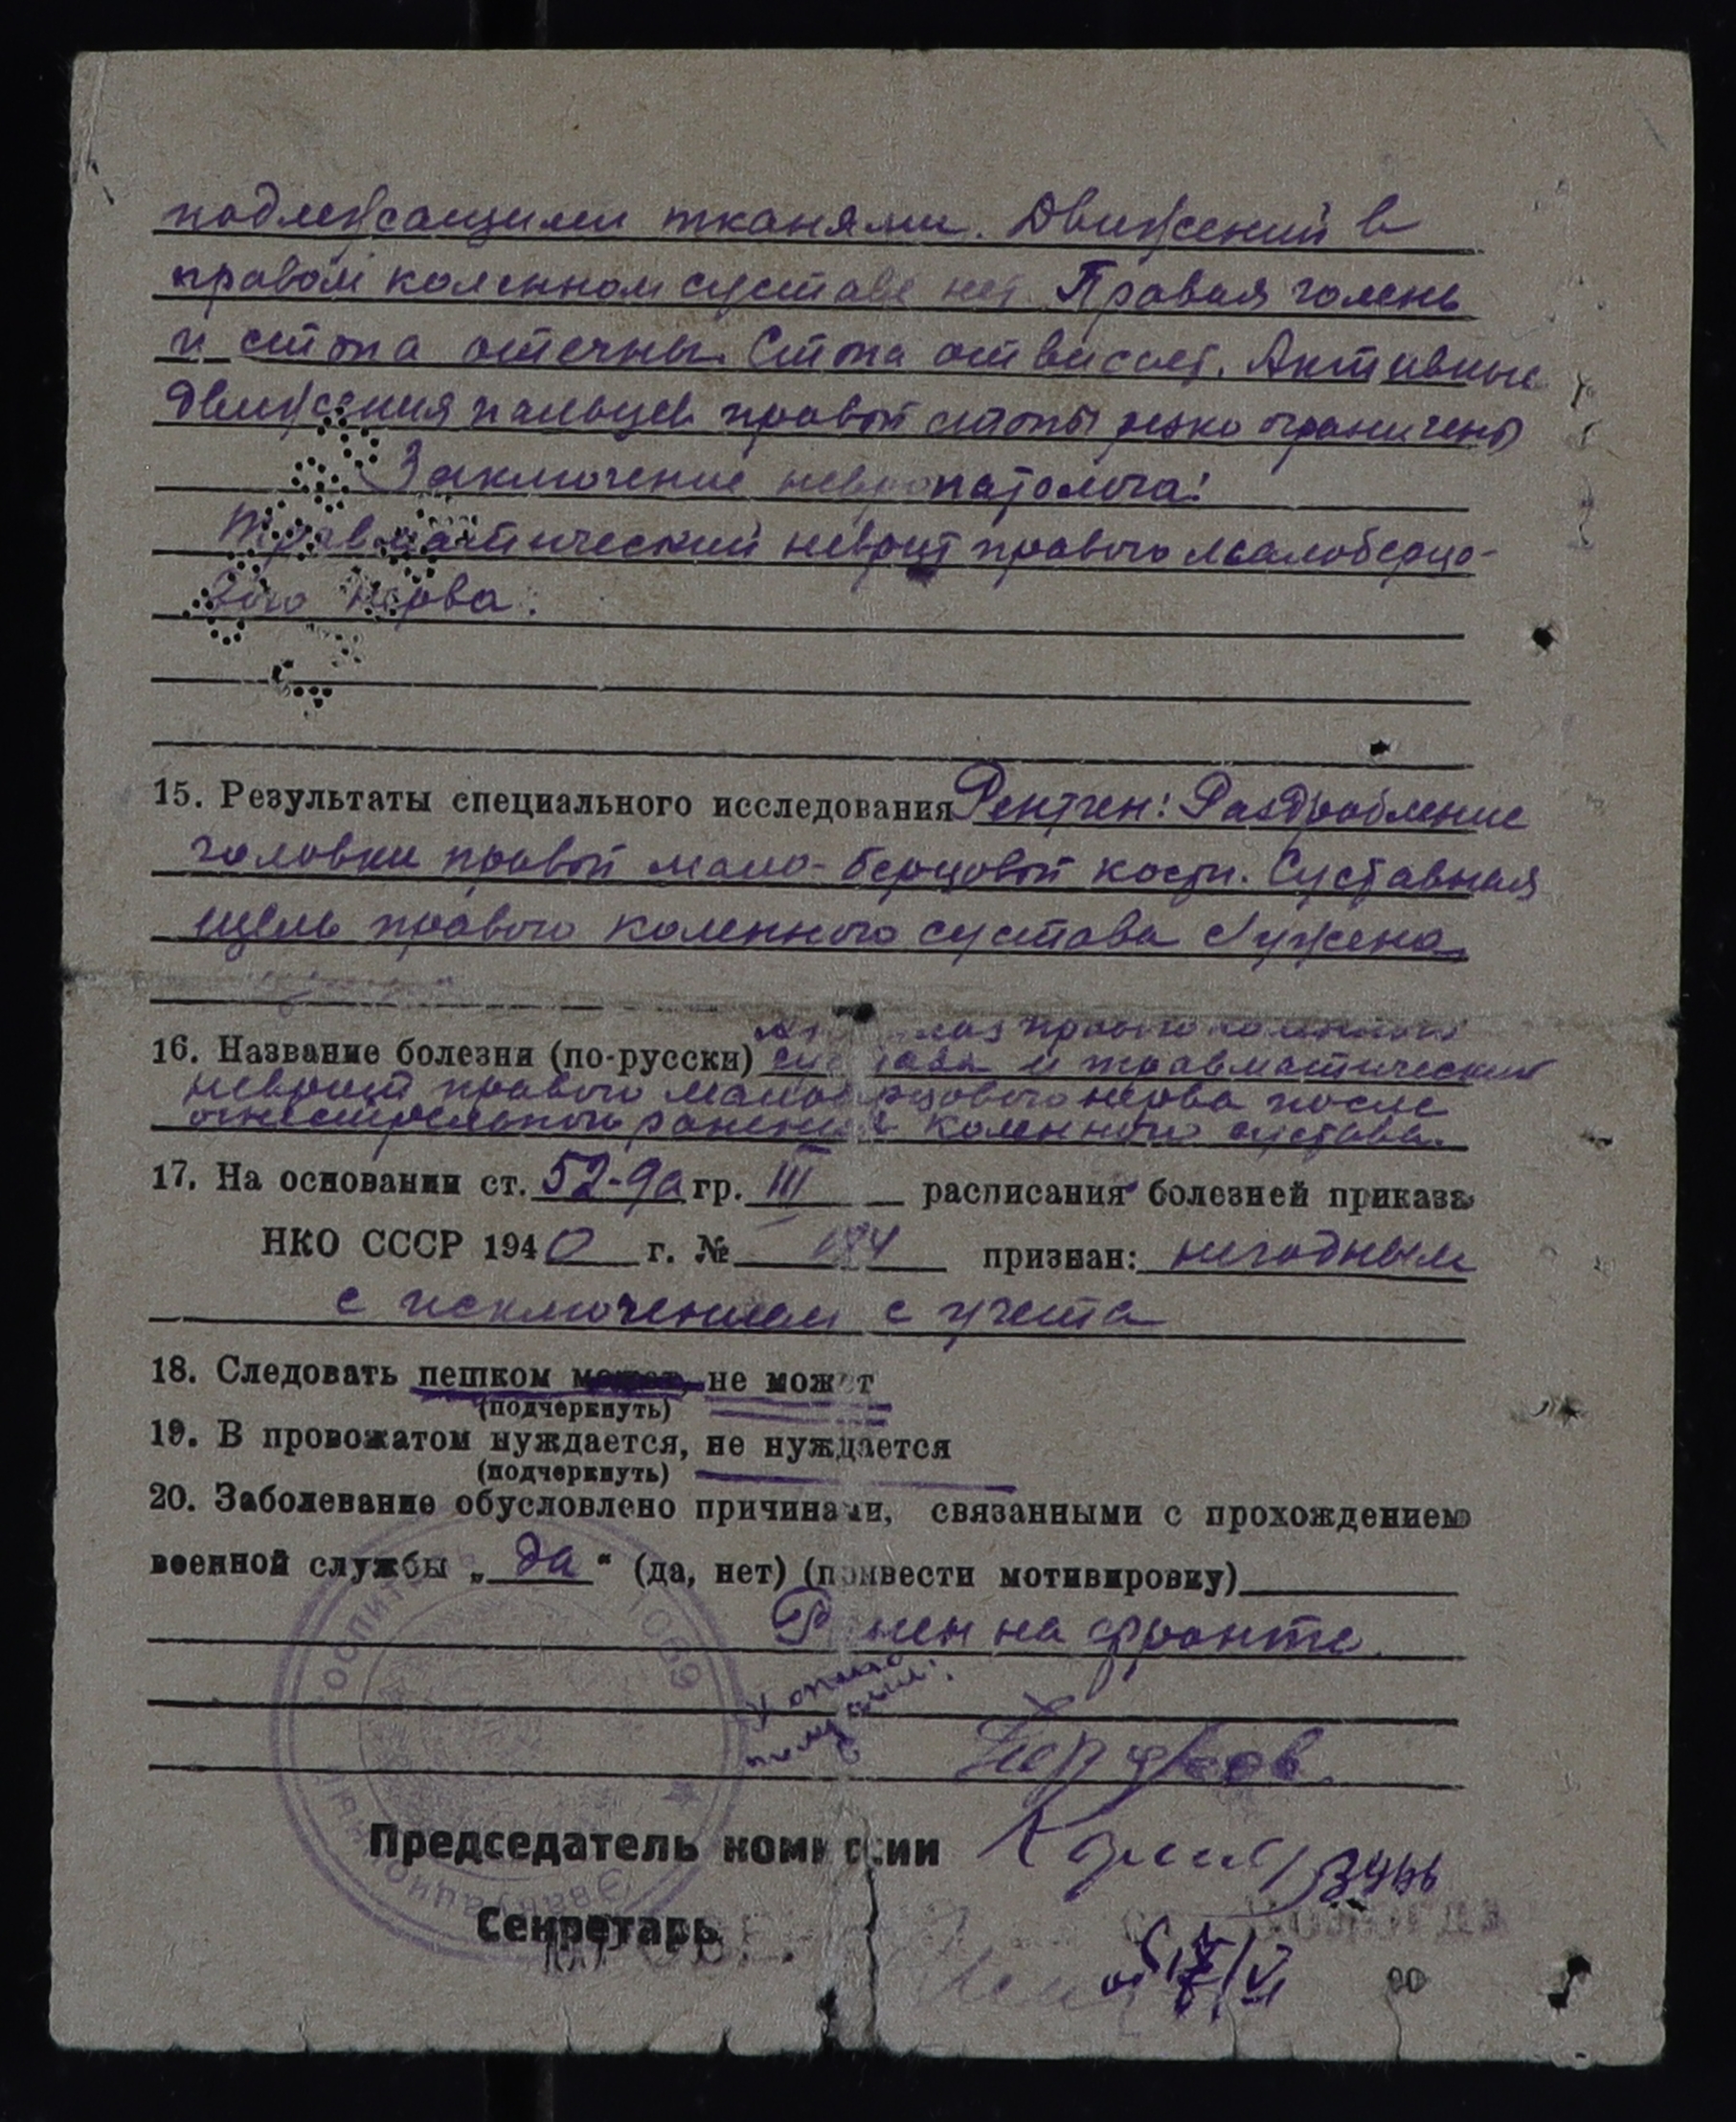 подлежащими тканями. Движений в
правом коленном суставе нет. Правая голень
и стопа отечны. Стопа отвисает. Активные
движения пальцев правой стопы резко ограничены
Заключение невропатолога:
Травматический неврит правого малоберцо-
вого нерва.
15. Результаты специального исследования Рентген: Раздробление
головки правой мало-берцовой кости. Суставная
щель правого коленного сустава сужена.
правого коленного
16. Название болезни (по-русски) сустава и травматический
неврит правого малоберцового нерва после
огнестрельного ранения коленного сустава.
17. На основании ст. 52-9а гр. III расписания болезней приказа
НКО СССР 1940 г. № 184 признан: негодным
с исключением с учета
18. Следовать пешком может, не может
(подчеркнуть)
19. В провожатом нуждается, не нуждается
(подчеркнуть)
20. Заболевание обусловлено причинами, связанными с прохождением
военной службы „да“ (да, нет) (привести мотивировку)
Ранен на фронте.
Председатель комиссии
Секретарь
Госпиталь 1069
Эвакуационный